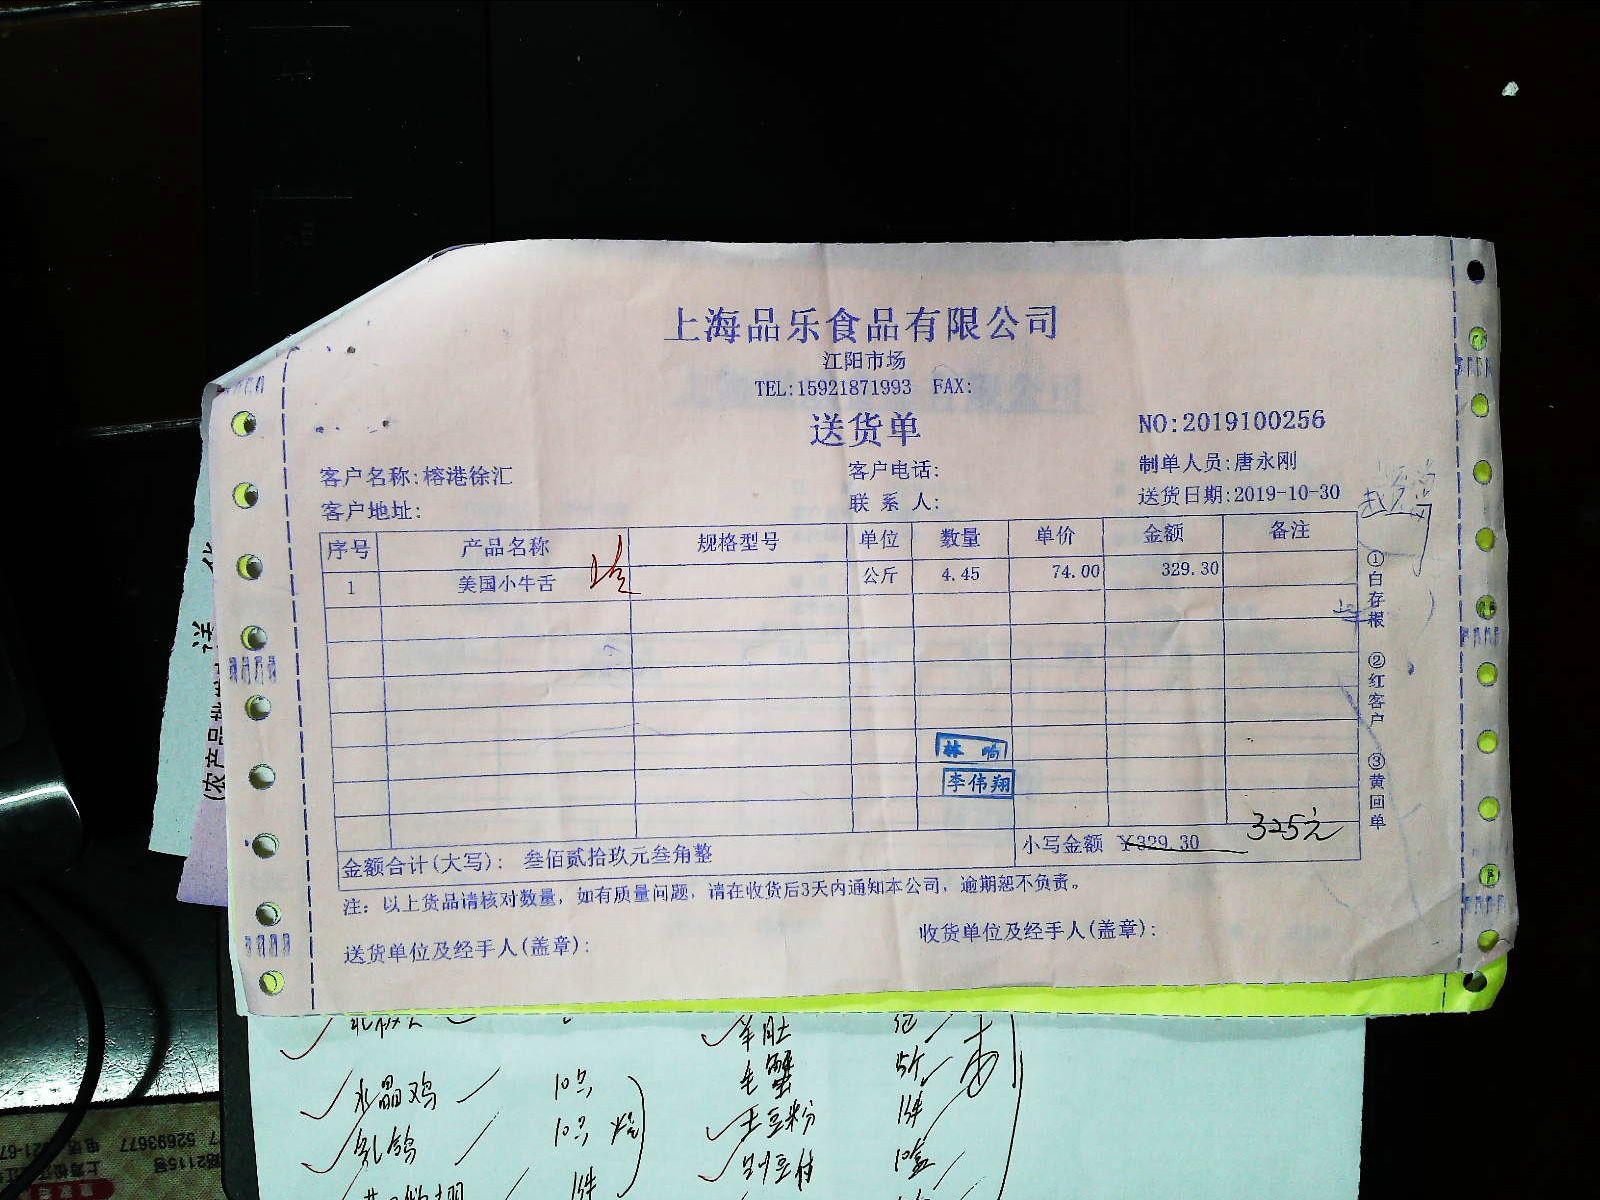 上海品乐食品有限公司
江阳市场
TEL:15921871993 FAX:
送货单
NO:2019100256
客户名称:榕港徐汇 客户电话: 制单人员:唐永刚
客户地址: 联系人: 送货日期:2019-10-30
序号 产品名称 规格型号 单位 数量 单价 金额 备注
1 美国小牛舌 公斤 4.45 74.00 329.30
①白存根 ②红客户 ③黄回单
林
李伟翔
325元
金额合计(大写): 叁佰贰拾玖元叁角整 小写金额 ¥329.30
注: 以上货品请核对数量, 如有质量问题, 请在收货后3天内通知本公司, 逾期恕不负责。
送货单位及经手人(盖章): 收货单位及经手人(盖章):
羊肚
毛蟹
水晶鸡 10只
土豆粉
乳鸽 10只
52693677